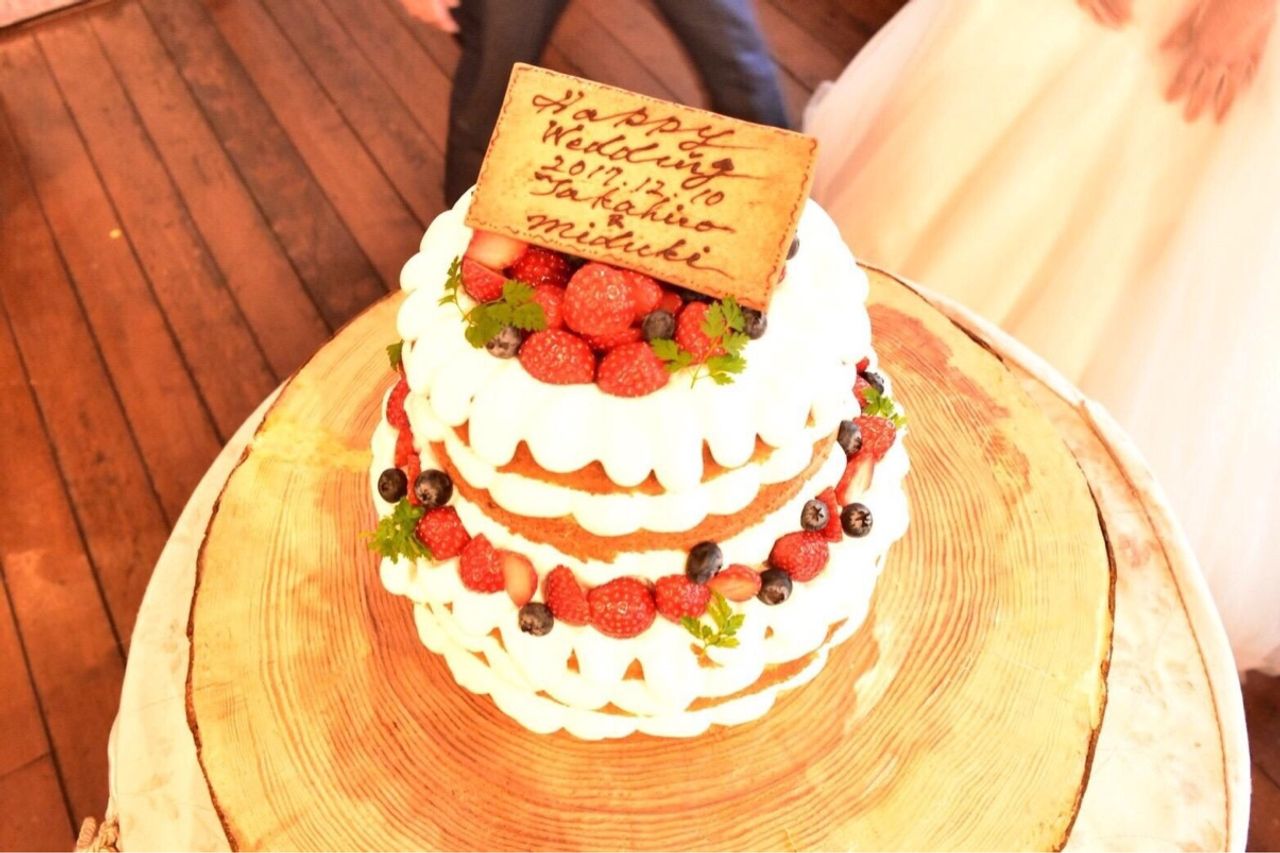 Happy
Wedding
2017.12.10
Takahiro
&
Miduki